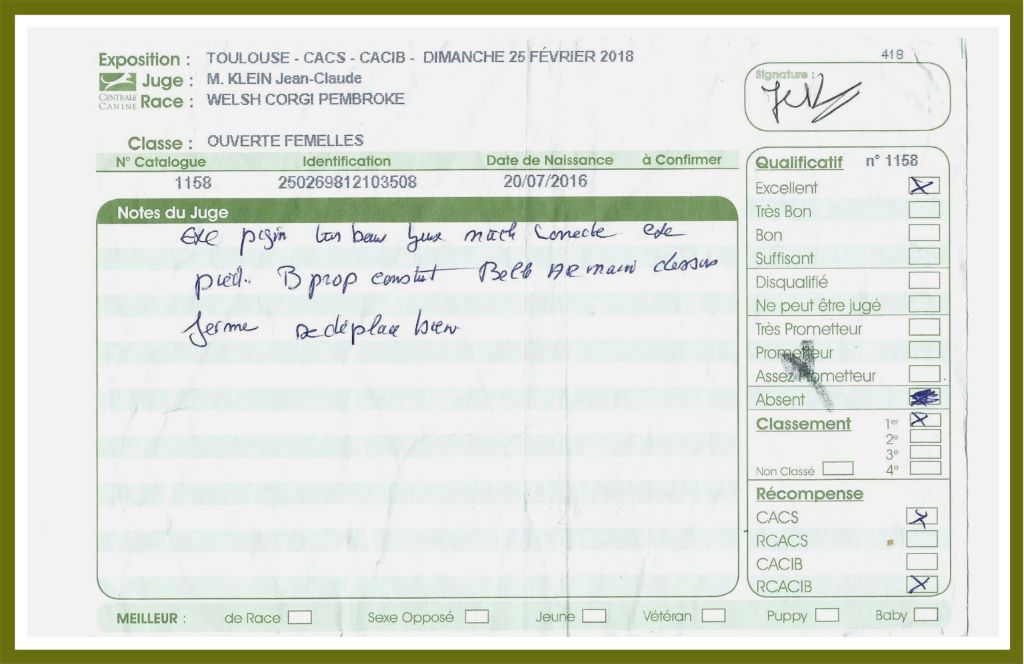 418
Exposition : TOULOUSE - CACS - CACIB - DIMANCHE 25 FÉVRIER 2018
Juge : M. KLEIN Jean-Claude
CENTRALE CANINE
Race : WELSH CORGI PEMBROKE
Signature :
Classe : OUVERTE FEMELLES
N° Catalogue Identification Date de Naissance à Confirmer
1158 250269812103508 20/07/2016
Notes du Juge
Exc beau yeux correcte exc
pied. B prop constut Belle dessus
ferme se déplace bien
Qualificatif n° 1158
Excellent X
Très Bon
Bon
Suffisant
Disqualifié
Ne peut être jugé
Très Prometteur
Prometteur
Assez Prometteur
Absent
Classement 1er X
2e
3e
Non Classé 4e
Récompense
CACS X
RCACS
CACIB
RCACIB X
MEILLEUR : de Race Sexe Opposé Jeune Vétéran Puppy Baby